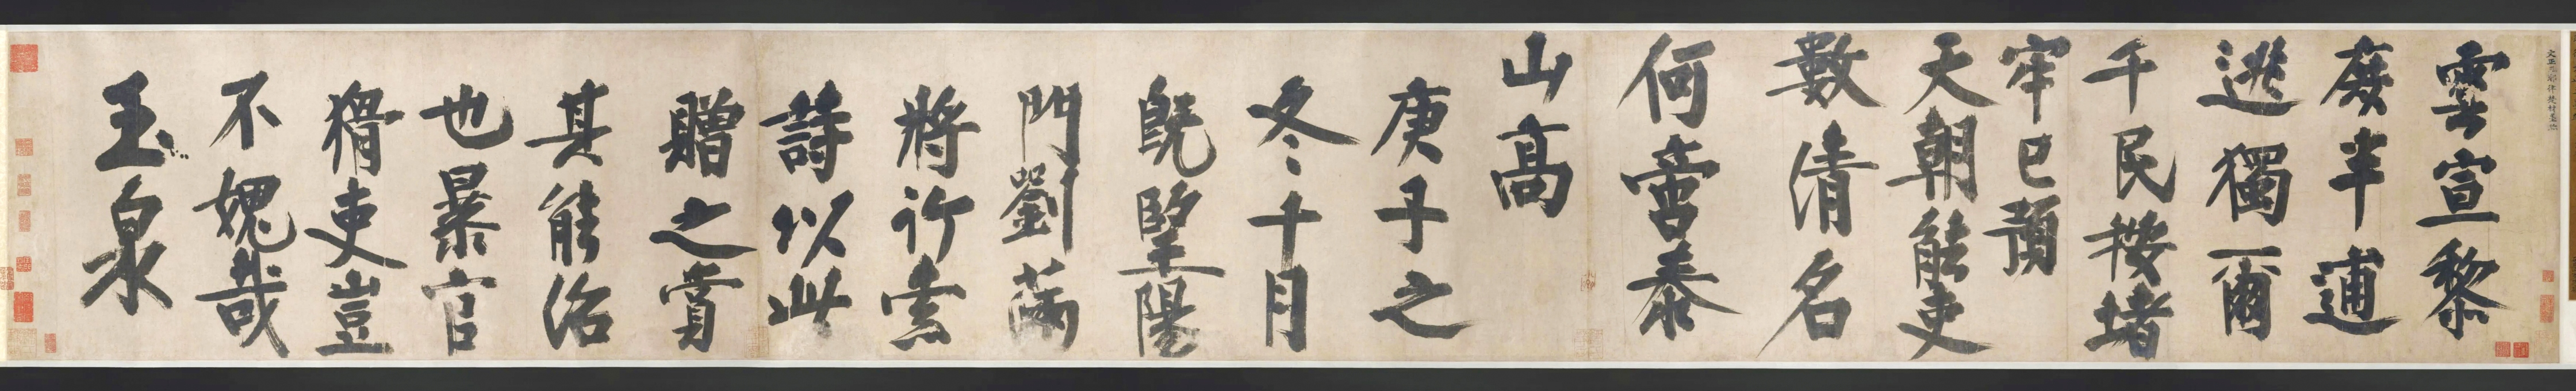 雲宣黎
庶半逋
逃獨爾
千民按堵
牢已預
天朝能吏
數清名
何啻泰
山高
庚子之
冬十月
既望陽
門劉滿
將行索
詩以此
贈之賞
其能治
也暴官
猾吏豈
不媿哉
玉泉